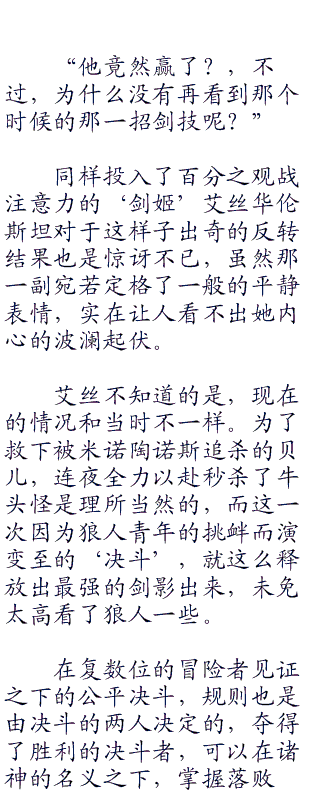 “他竟然赢了？，不
过，为什么没有再看到那个
时候的那一招剑技呢？”
同样投入了百分之观战
注意力的‘剑姬’艾丝华伦
斯坦对于这样子出奇的反转
结果也是惊讶不已，虽然那
一副宛若定格了一般的平静
表情，实在让人看不出她内
心的波澜起伏。
艾丝不知道的是，现在
的情况和当时不一样。为了
救下被米诺陶诺斯追杀的贝
儿，连夜全力以赴秒杀了牛
头怪是理所当然的，而这一
次因为狼人青年的挑衅而演
变至的‘决斗’，就这么释
放出最强的剑影出来，未免
太高看了狼人一些。
在复数位的冒险者见证
之下的公平决斗，规则也是
由决斗的两人决定的，夺得
了胜利的决斗者，可以在诸
神的名义之下，掌握落败